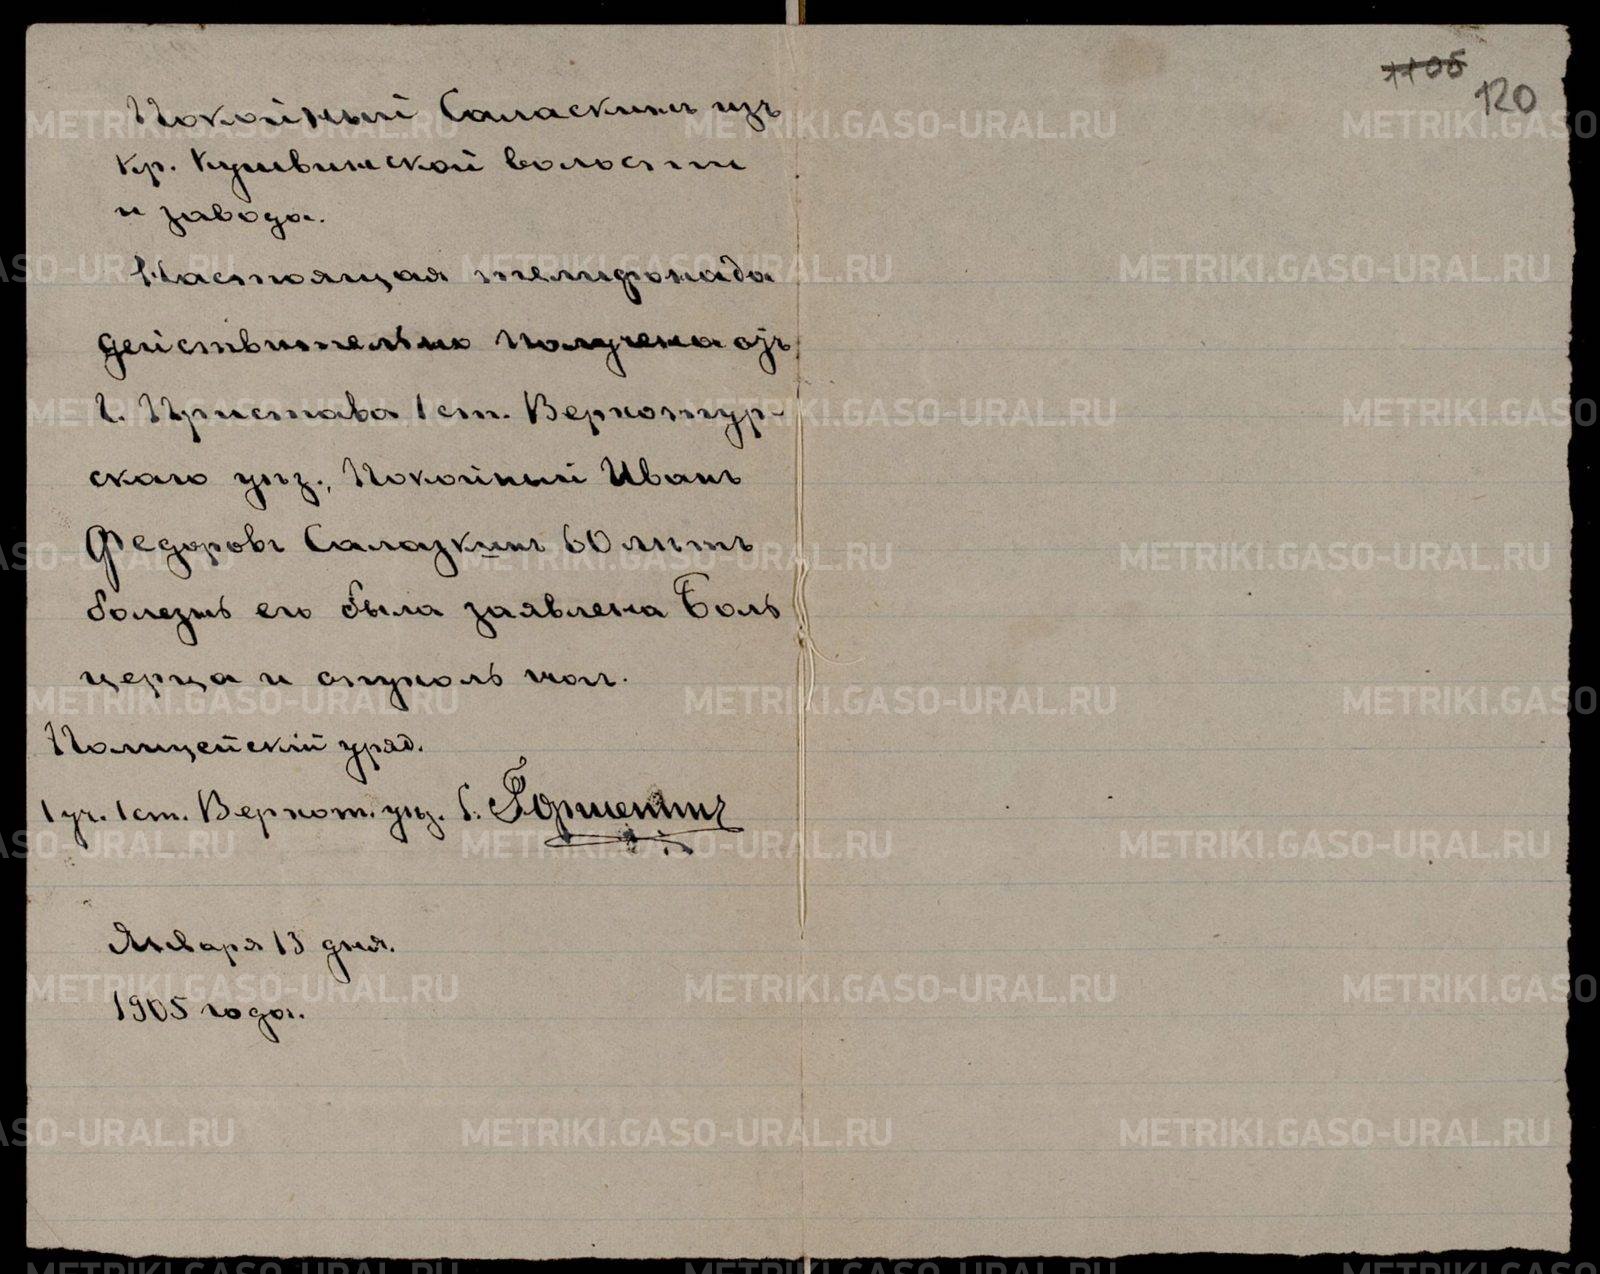 1106
120
Покойный Саласкинъ изъ
кр. Кушвинской волости
и завода.
Настоящая телифонада
действительно получена отъ
Г. Пристава 1 ст. Верхотур-
скаго уѣз., Покойный Иванъ
Федоровъ Салазкинъ 60 лѣтъ
болезнь его была заявлена Боль
церца и опухоль ног.
Полицейскій уряд.
1 уч. 1 ст. Верхот. уѣз.
Января 13 дня.
1905 года.
METRIKI.GASO-URAL.RU